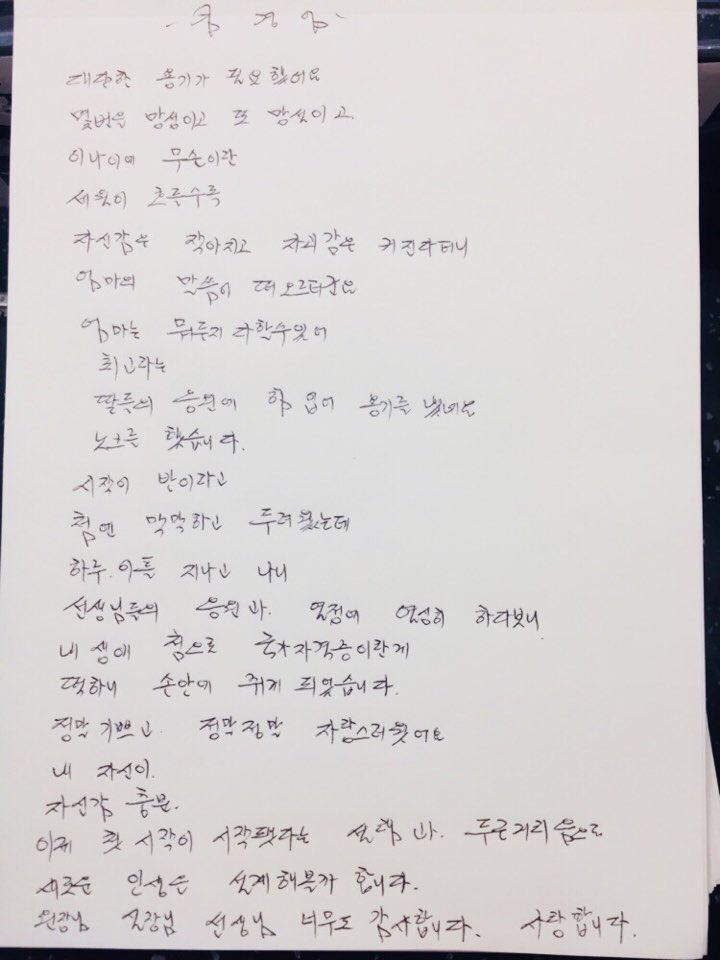 대단한 용기가 필요했어요
몇번은 망성이고 또 망성이고
이나이에 무슨이란
세월이 흐른수록
자신감은 작아지고 자괴감은 커진라더니
엄마의 말씀이 떠오르더군요
엄마는 뭐루지 다할수있어
최고라는
딸들의 응원에 힘 입어 용기를 냈네요
노크를 했습니다.
시작이 반이라고
첨엔 막막하고 두려웠는데
하루.이틀 지나고 나니
선생님들의 응원과. 열정에 열심히 하다보니
내 생에 첨으로 국가자격증이란게
떡하니 손안에 쥐게 되었습니다.
정말 기쁘고. 정말정말 자랑스러웠어요
내 자신이.
자신감 충분.
이제 첫 시작이 시작됐다는 설램과. 두근거리음으로
새로운 인생은 설계해볼가 합니다.
원장님 실장님 선생님 너무도 감사합니다. 사랑합니다.